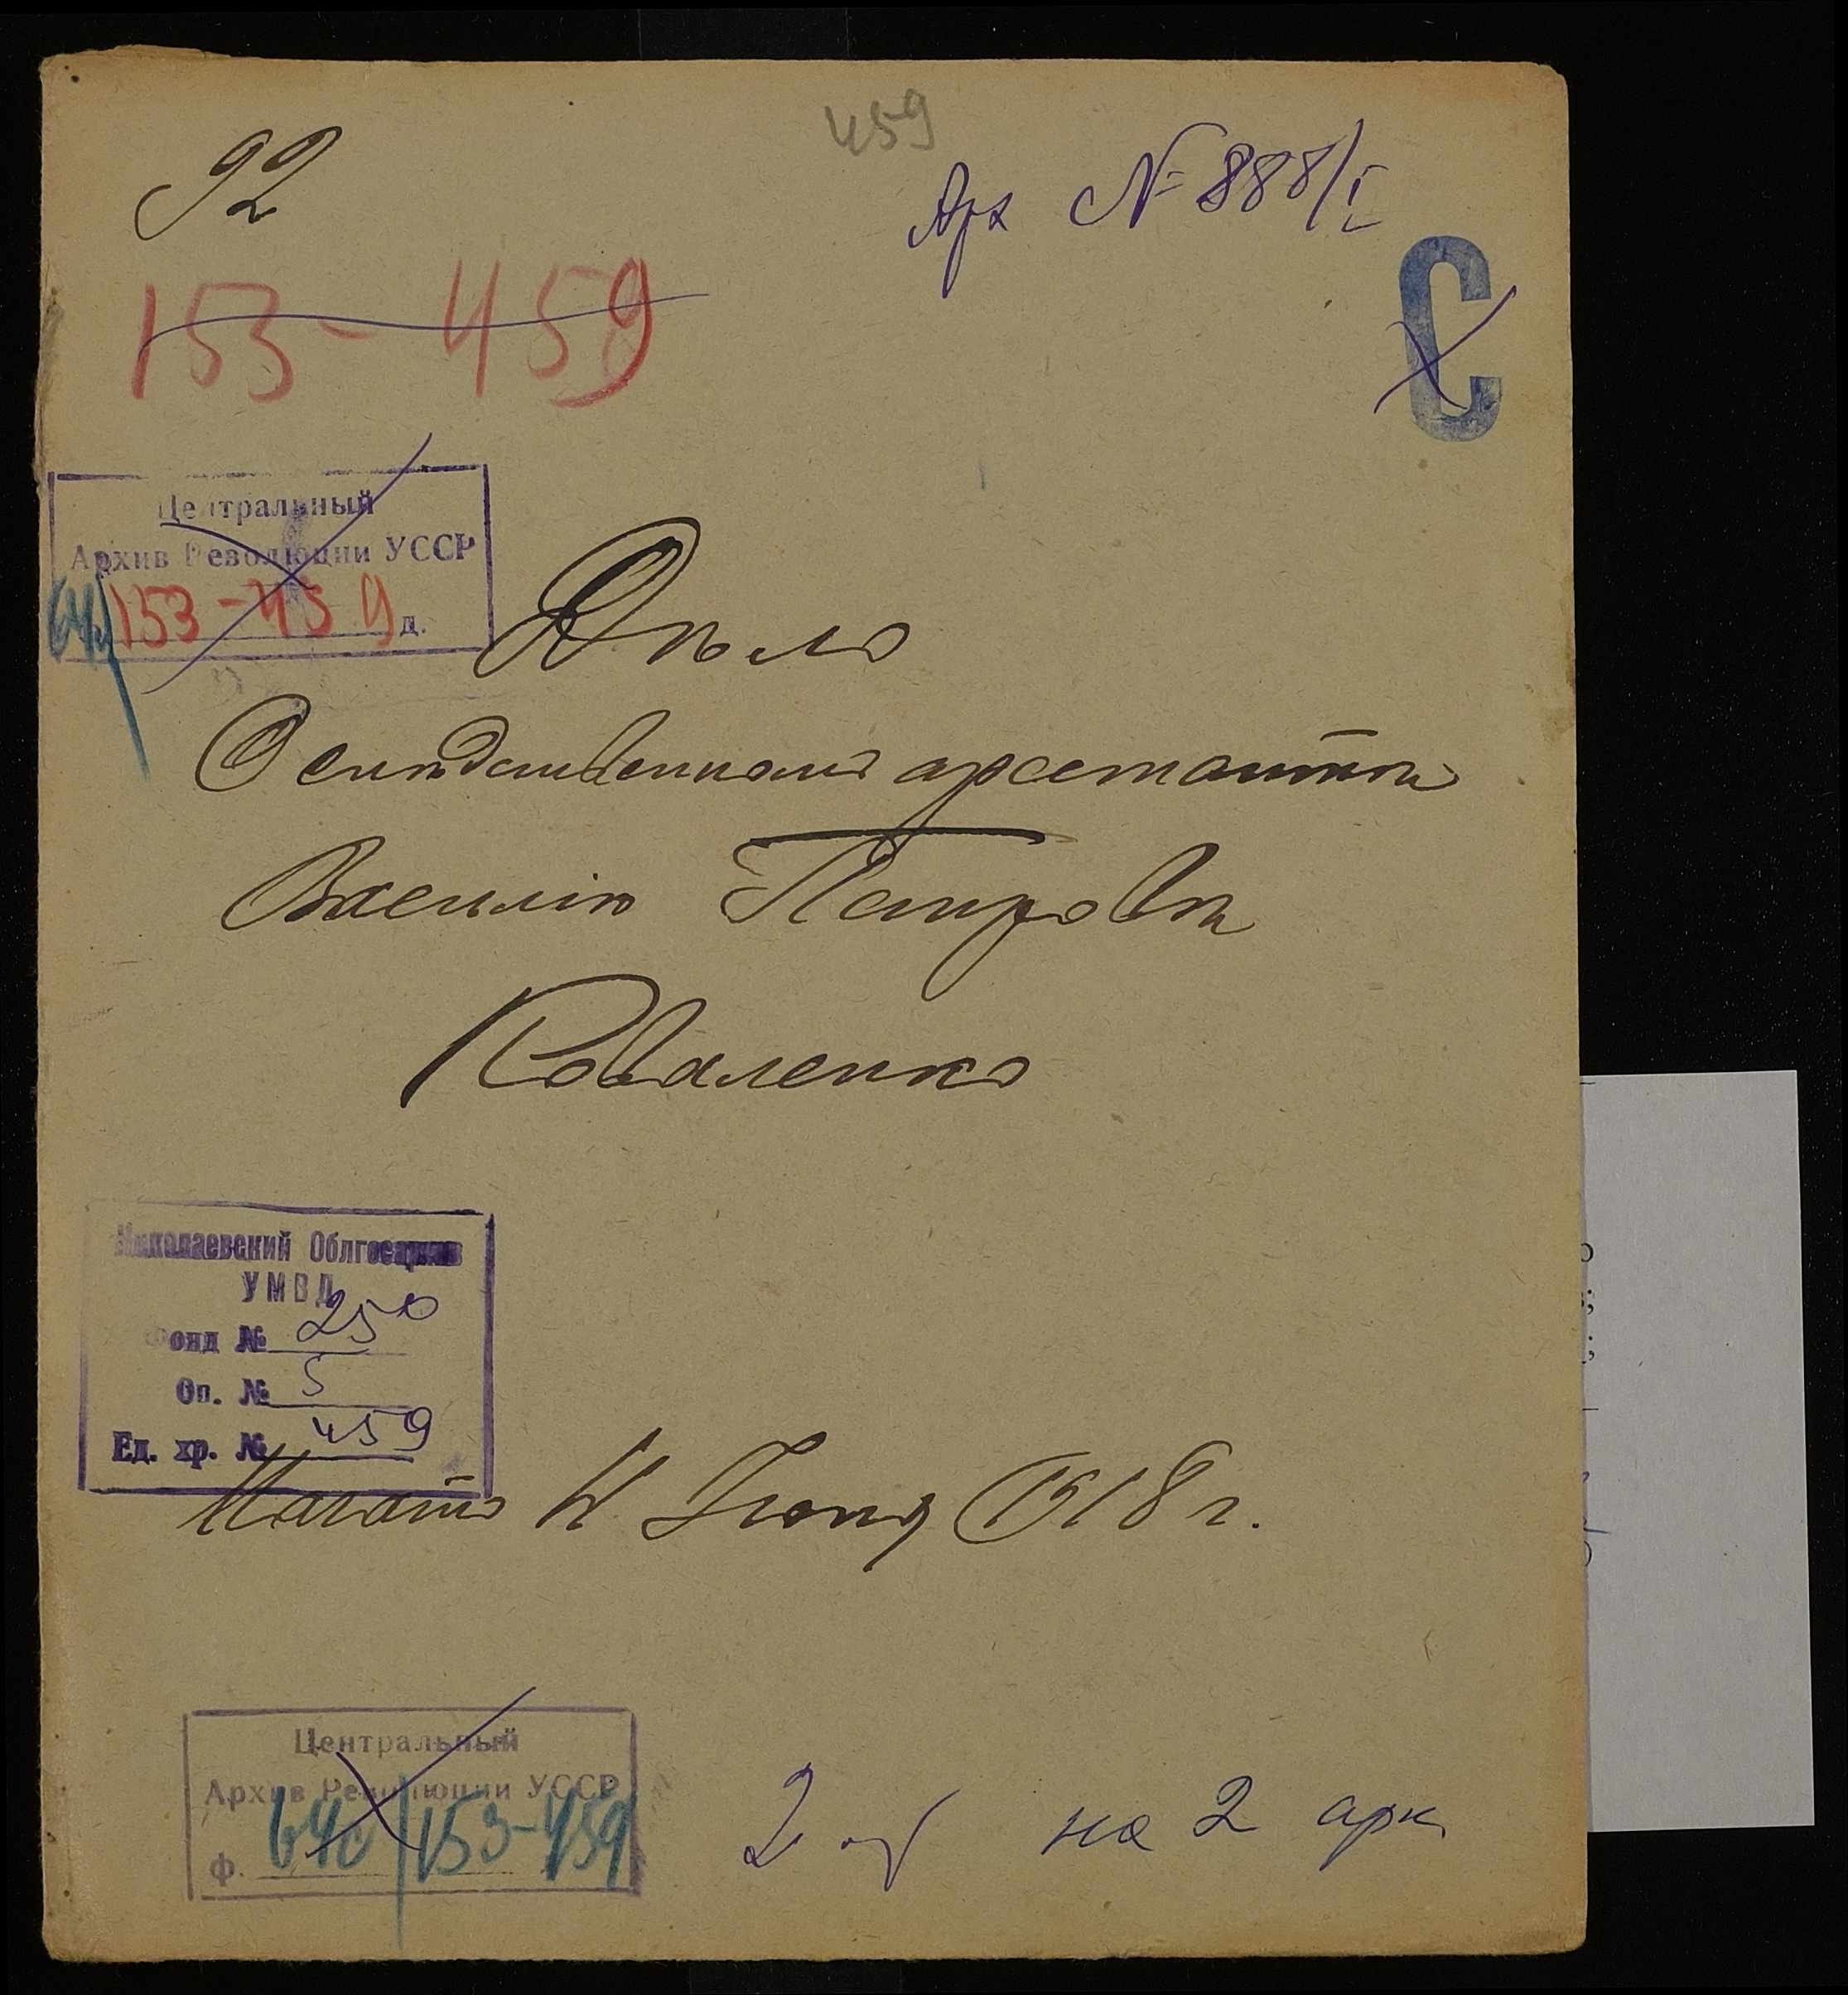 92
459
Арх № 888/I
153-459
С
Центральный
Архив Революции УССР
64с/153-459 д.
Дѣло
О слѣдственномъ арестантѣ
Василію Петровѣ
Коваленко
Николаевский Облгосархив
УМВД
Фонд № 250
Оп. № 5
Ед. хр. № 459
Начато 11 Июня 1918 г.
Центральный
Архив Революции УССР
ф. 64с/153-459
на 2 арк